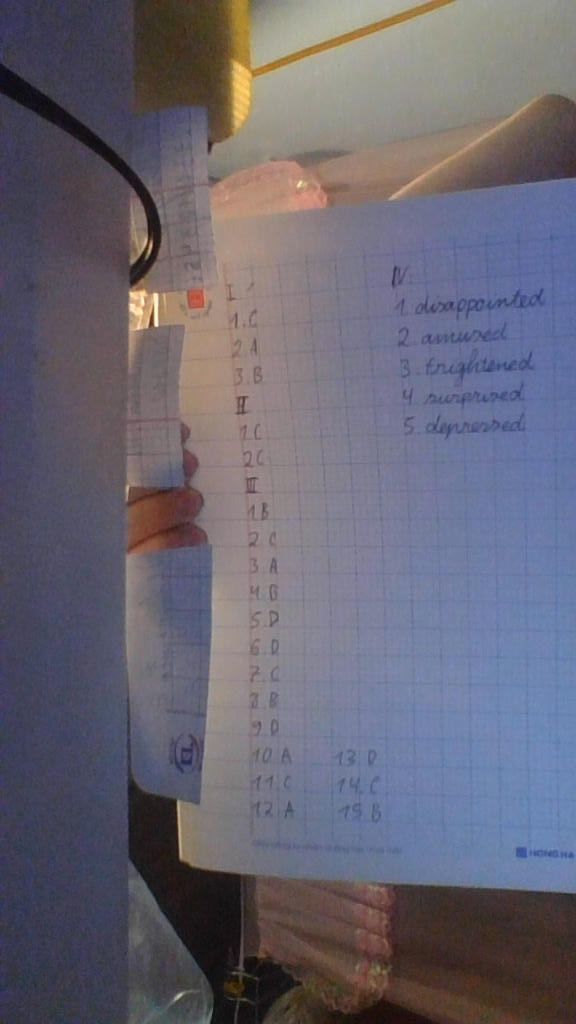 I
1. C
2. A
3. B
II
1. C
2 C
III
1. B
2 C
3. A
4. B
5. D
6. D
7. C
8. B
9 D
10. A
11. C
12. A
13. D
14. C
15. B
IV.
1. disappointed
2. amused
3. frightened
4 surprised
5. depressed
HONG HA